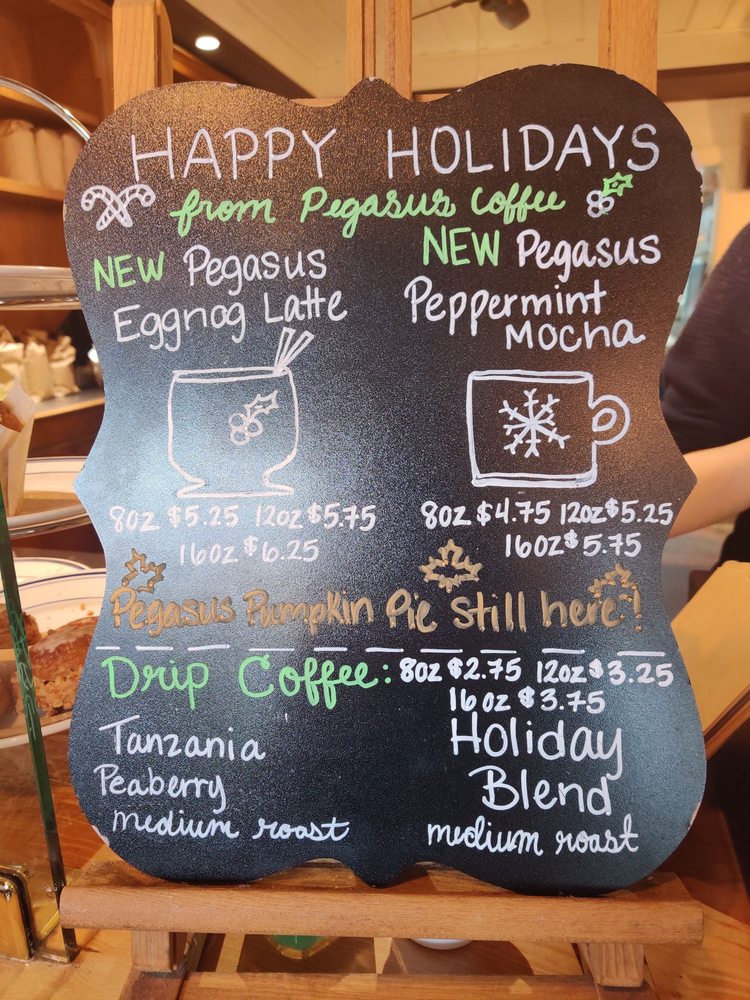 HAPPY HOLIDAYS
from Pegasus Coffee
NEW Pegasus
Eggnog Latte
8oz $5.25 12oz $5.75
16oz $6.25
NEW Pegasus
Peppermint
Mocha
8oz $4.75 12oz $5.25
16oz $5.75
Pegasus Pumpkin Pie still here!
Drip Coffee: 8oz $2.75 12oz $3.25
16oz $3.75
Tanzania
Peaberry
medium roast
Holiday
Blend
medium roast